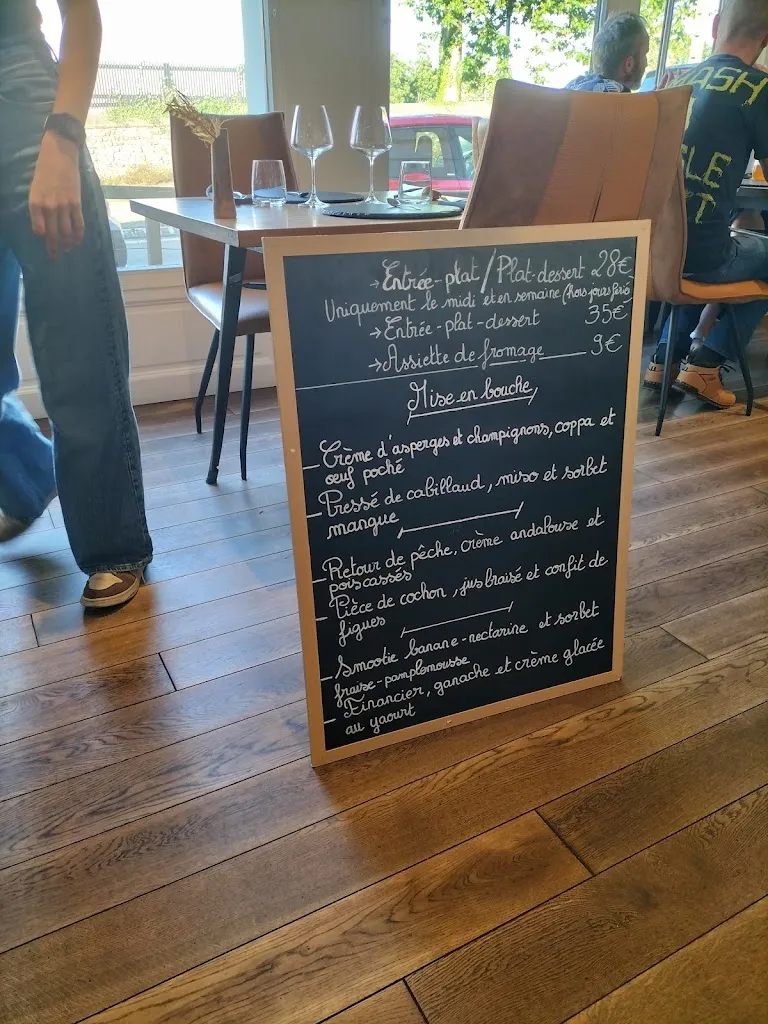 →Entrée-plat/Plat-dessert 28€
Uniquement le midi et en semaine (hors jours férié
→Entrée-plat-dessert 35€
→Assiette de fromage 9€
Mise en bouche
- Crème d'asperges et champignons, coppa et
œuf poché
- Pressé de cabillaud, miso et sorbet
mangue
- Retour de pêche, crème andalouse et
pois cassés
- Pièce de cochon, jus braisé et confit de
figues
- Smootie banane-nectarine et sorbet
fraise-pamplemousse
- Financier, ganache et crème glacée
au yaourt
ASH
LE
T